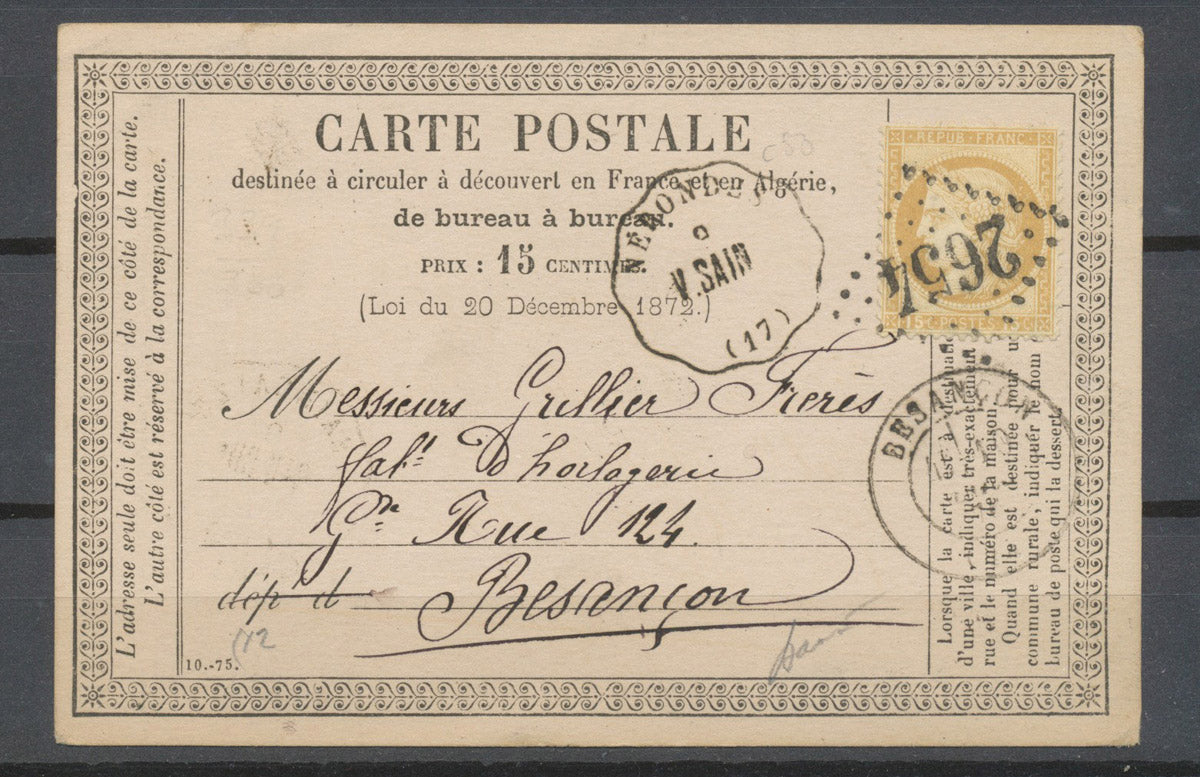 L'adresse seule doit être mise de ce côté de la carte.
L'autre côté est réservé à la correspondance.
CARTE POSTALE
destinée à circuler à découvert en France et en Algérie,
de bureau à bureau.
PRIX : 15 CENTIMES.
(Loi du 20 Décembre 1872.)
NÉRONDES
V. SAIN
(17)
REPUB · FRANC
2654
15 C · POSTES · 15 C
Messieurs Grillier Frères
fabt. D'horlogerie
Gde Rue 124
dépt d Besançon
BESANÇON
Lorsque la carte est à destination
d'une ville, indiquer très-exactement la
rue et le numéro de la maison.
Quand elle est destinée pour une
commune rurale, indiquer le nom du
bureau de poste qui la dessert.
10.-75.